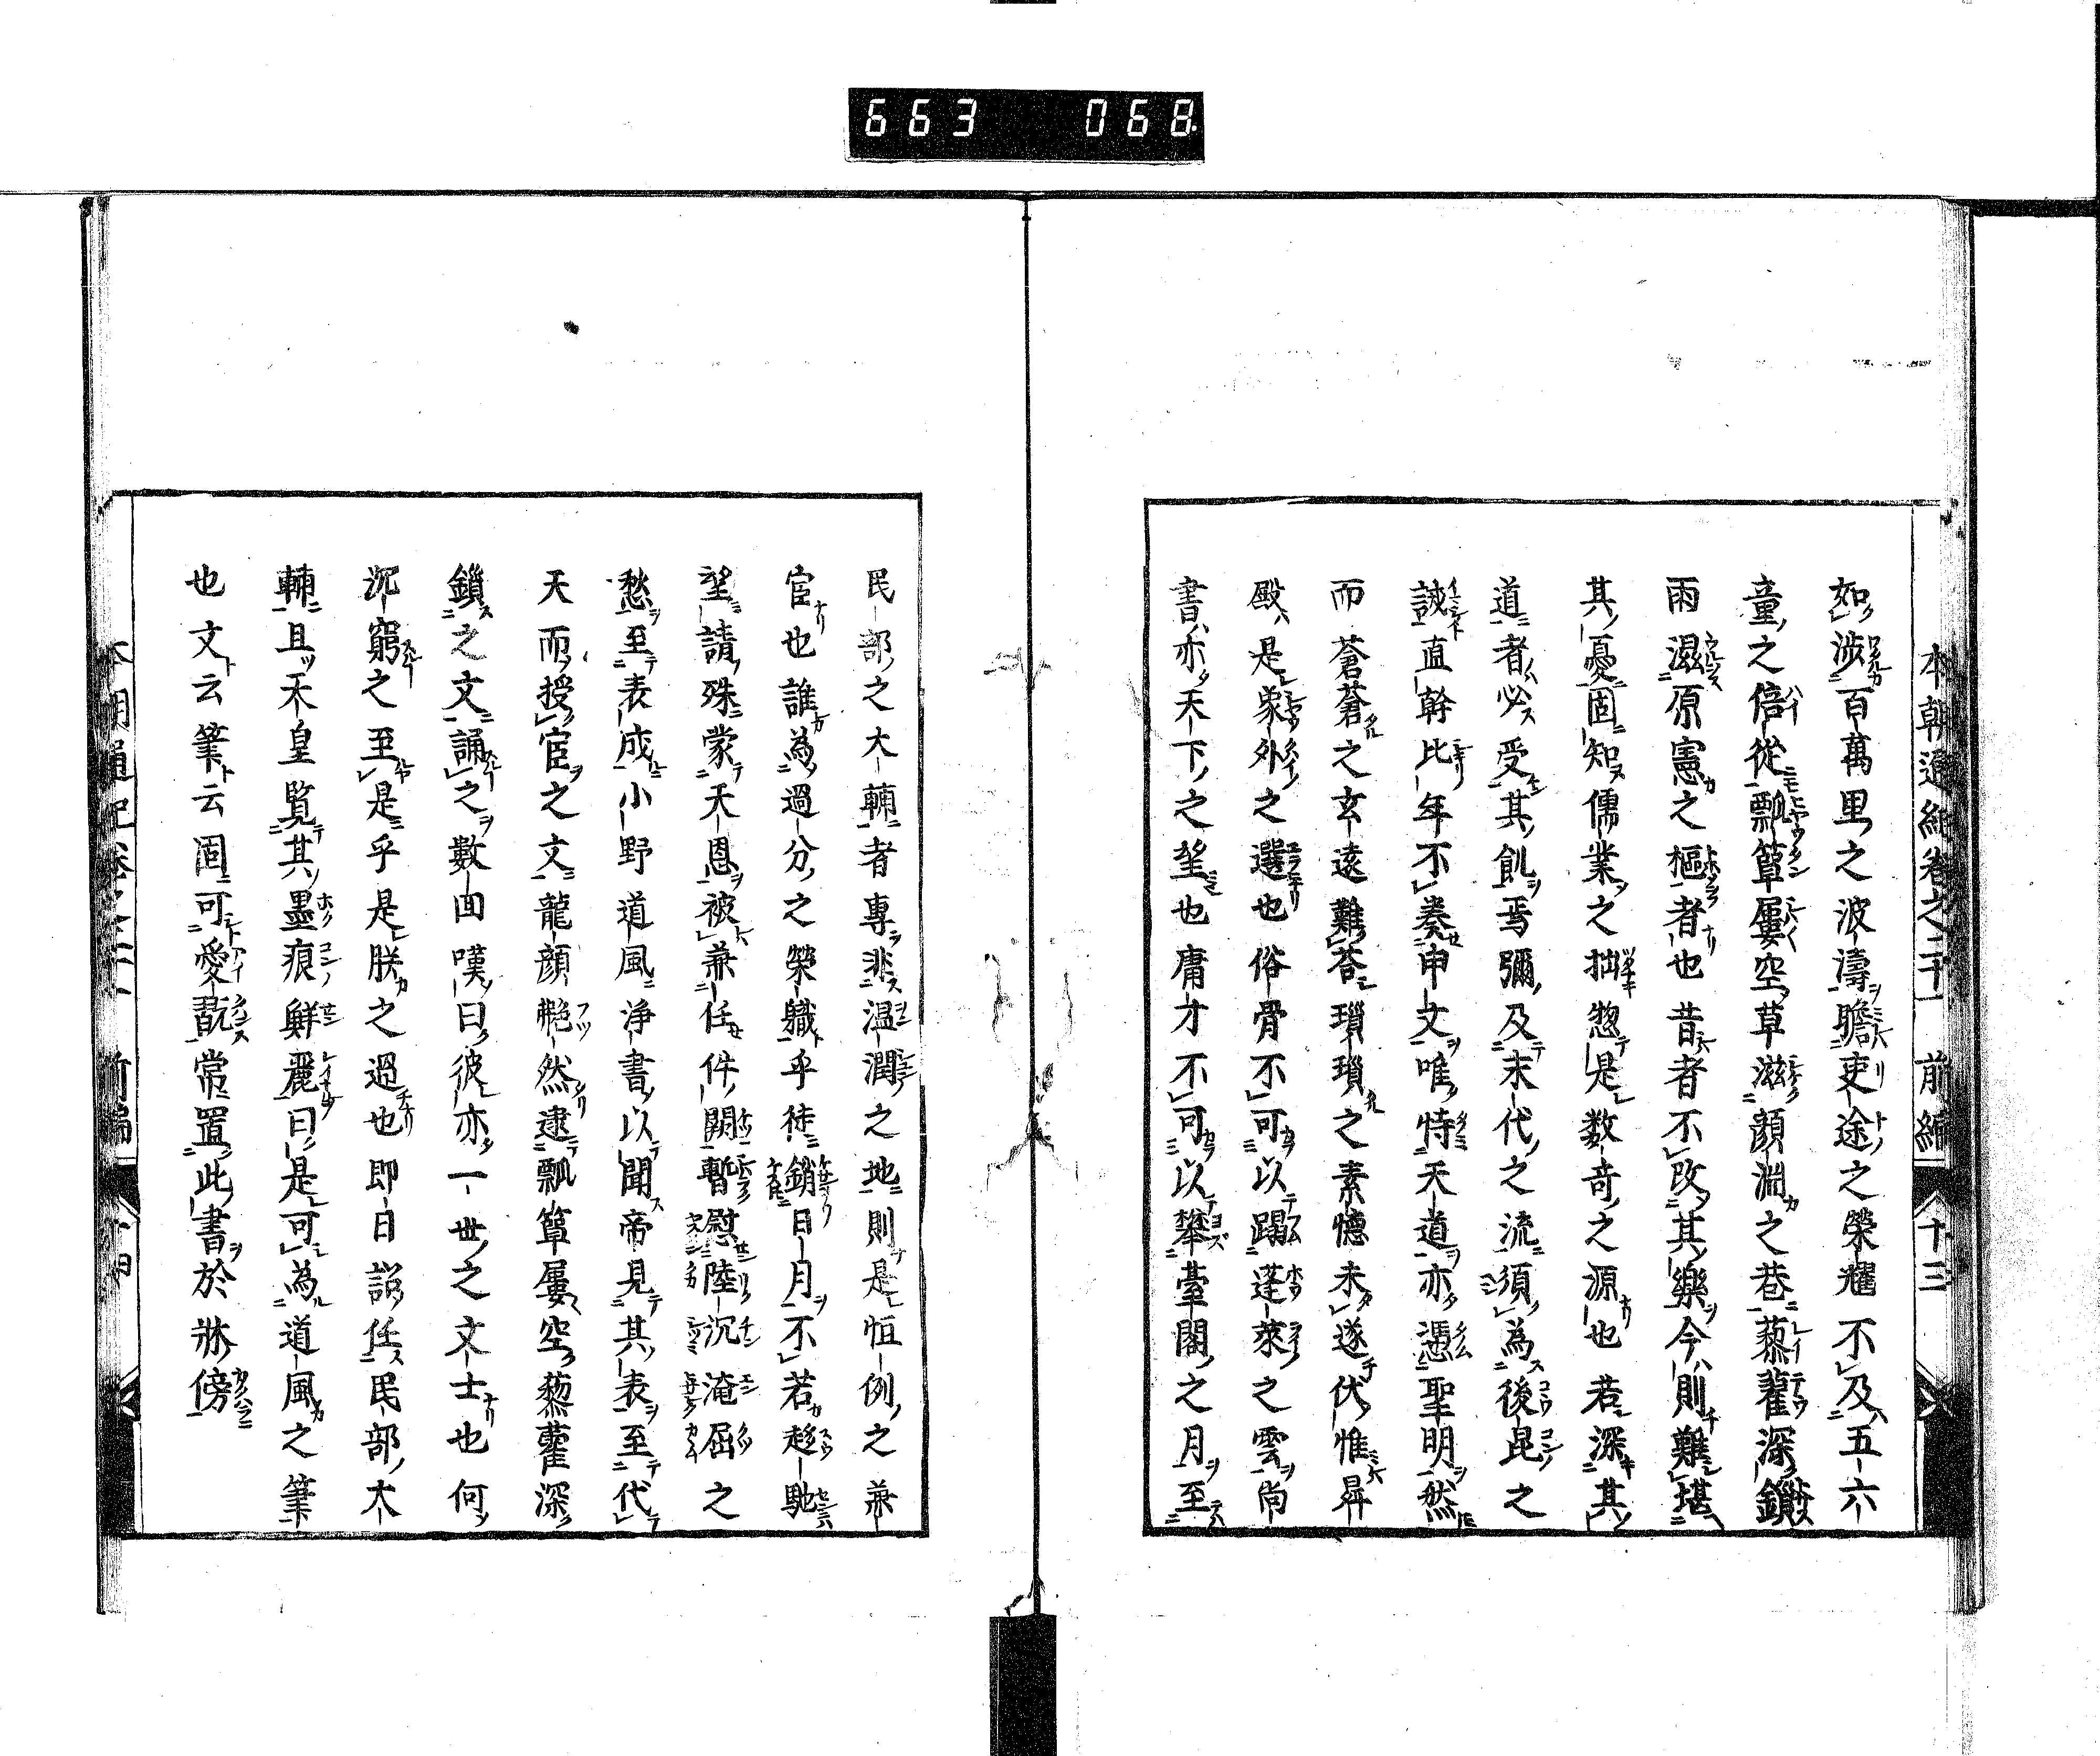 663 068
本朝通紀卷之二十一 前編 十三
如渉百萬里之波濤瞻吏途之榮耀不及五六
童之倍從瓢簞屢空草滋顏淵之巷藜藋深鎖
雨滋原憲之樞者也昔者不改其樂今則難堪
其憂固知儒業之拙惣是数奇之源也若深其
道者必受其飢焉彌及末代之流須為後昆之
誠直幹比年不奏申文唯恃天道亦憑聖明然
而蒼蒼之玄遠難荅瑣瑣之素憶未遂伏惟昇
殿是象外之選也俗骨不可以蹋蓬萊之雲尚
書亦天下之望也庸才不可以攀臺閣之月至
民部之大輔者專非温潤之地則是恒例之兼
官也誰為過分之榮職乎徒銷日月不若趍馳
望請殊蒙天恩被兼任件闕暫慰陸沉淹屈之
愁至表成小野道風浄書以聞帝見其表至代
天而授官之文龍顏艴然逮瓢簞屢空藜藿深
鎖之文誦之數囬嘆曰彼亦一世之文士也何
沉窮之至是乎是朕之過也即日詔任民部大
輔且天皇覧其墨痕鮮麗曰是可為道風之筆
也文云筆云固可愛翫常置此書於牀傍